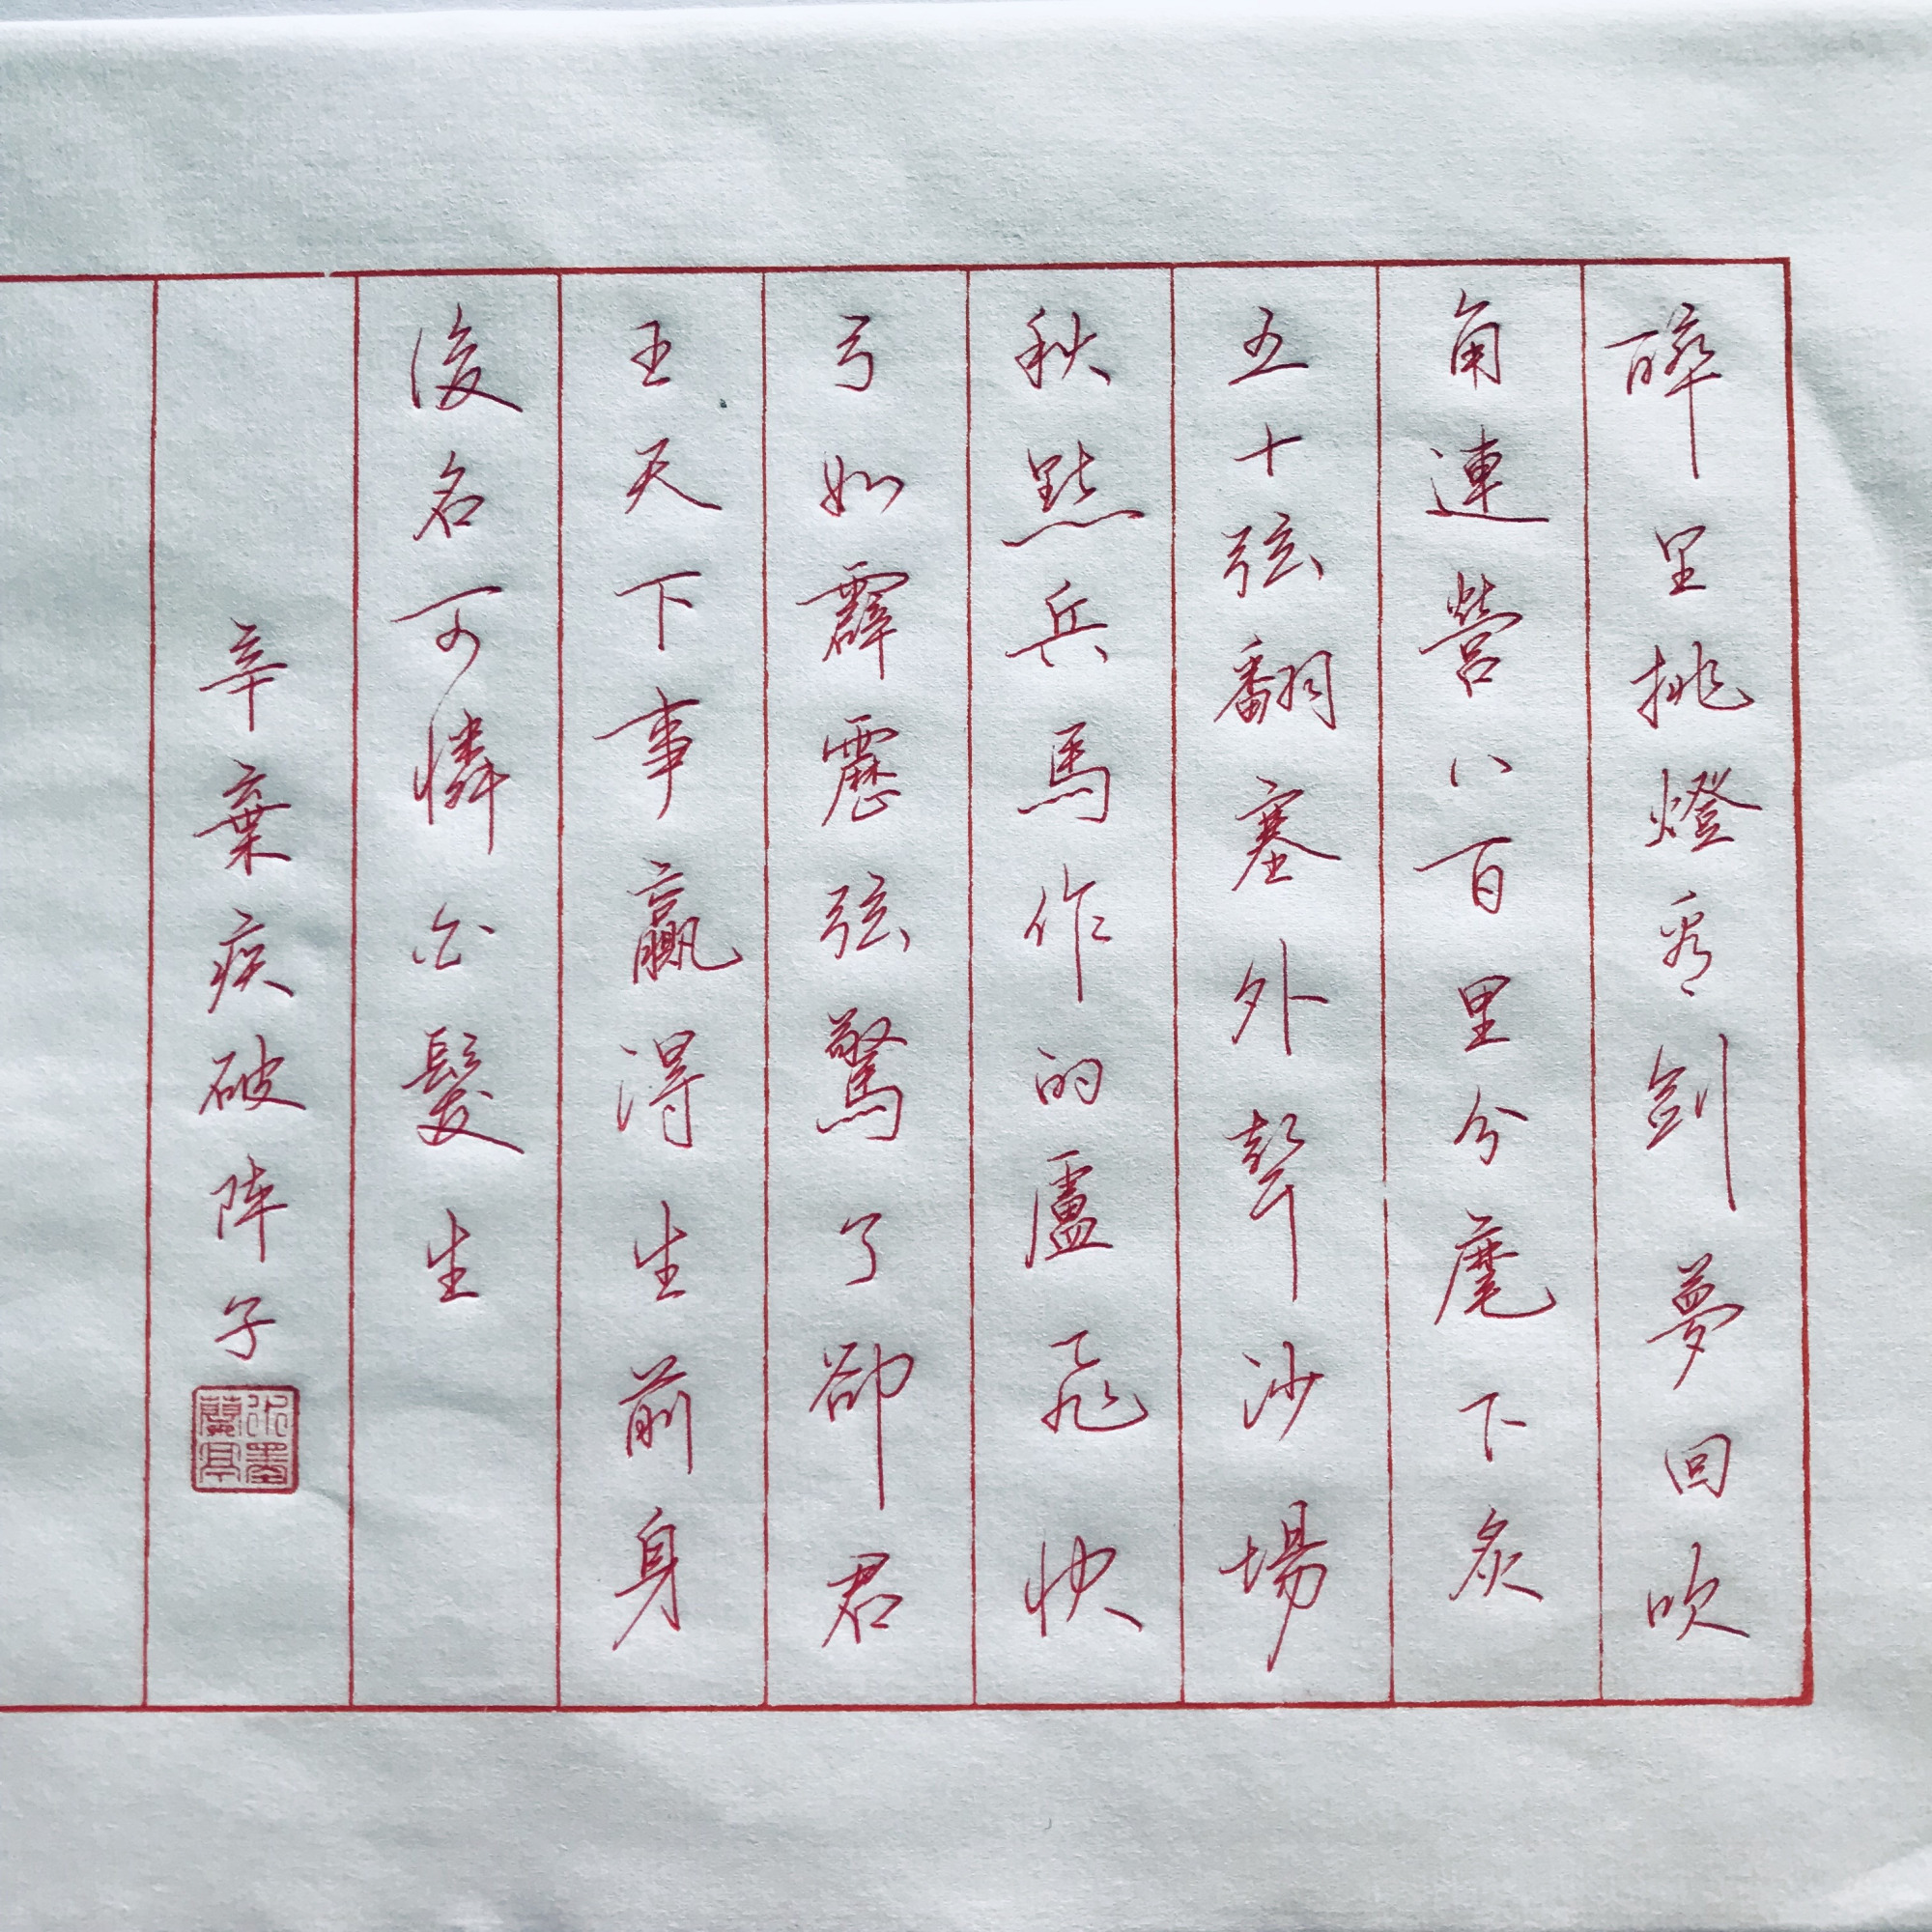 醉里挑燈看劍夢回吹
角連營八百里分麾下炙
五十弦翻塞外聲沙場
秋點兵馬作的盧飛快
弓如霹靂弦驚了卻君
王天下事贏得生前身
後名可憐白髮生
辛棄疾破陣子